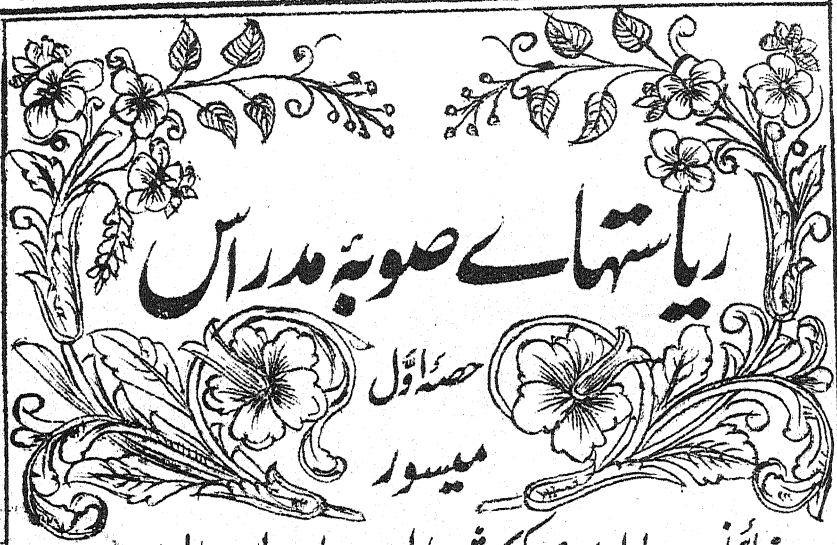 ریاستہاے صوبۂ مدراس
حصۂ اوّل
میسور